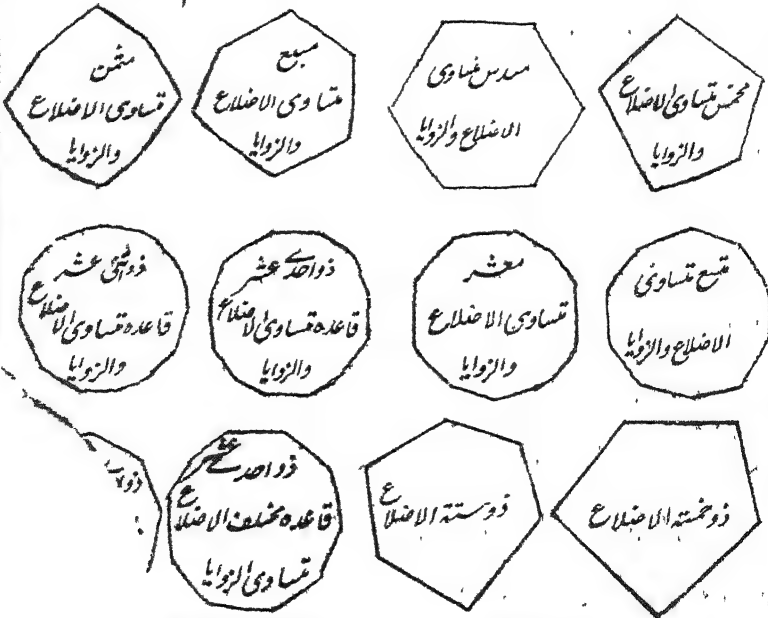 مخمس متساوی الاضلاع
والزوایا
مسدس متساوی
الاضلاع والزوایا
مسبع
متساوی الاضلاع
والزوایا
مثمن
متساوی الاضلاع
والزوایا
متسع متساوی
الاضلاع والزوایا
معشر
متساوی الاضلاع
والزوایا
ذواحدے عشر
قاعده متساوی الاضلاع
والزوایا
ذواثنی عشر
قاعده متساوی الاضلاع
والزوایا
ذوخمسته الاضلاع
ذوستته الاضلاع
ذواحدے عشر
قاعده مختلف الاضلاع
متساوی الزوایا